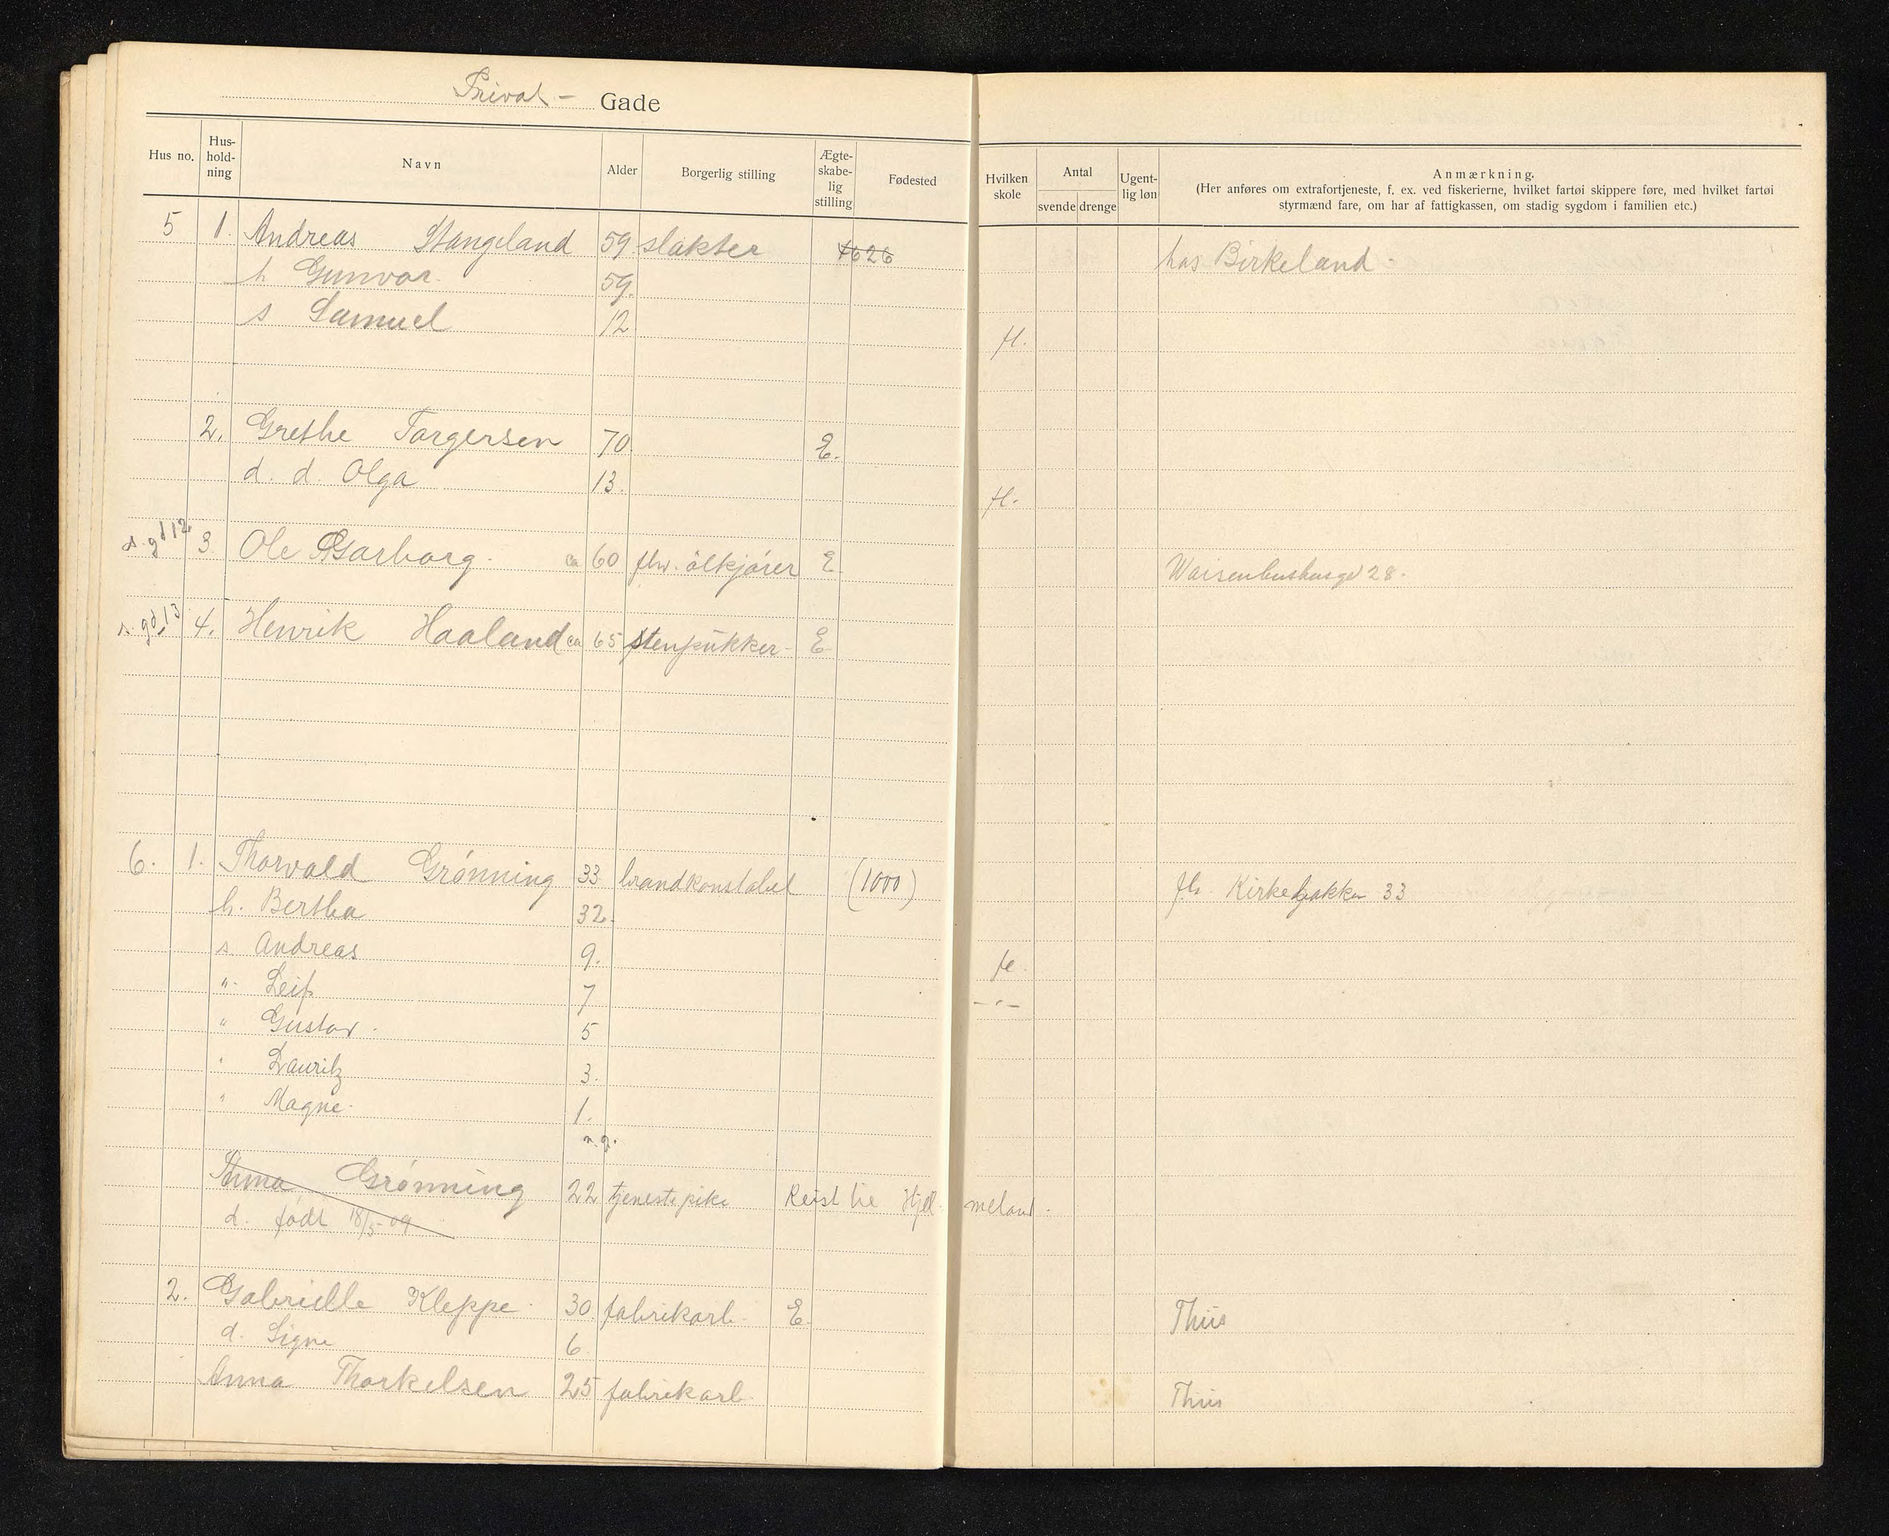 Privat- Gade
Hus no. Hus-hold-ning Navn Alder Borgerlig stilling Ægte-skabe-lig stilling Fødested Hvilken skole Antal svende drenge Ugent-lig løn Anmærkning.
(Her anføres om extrafortjeneste, f. ex. ved fiskerierne, hvilket fartøi skippere føre, med hvilket fartøi
styrmænd fare, om har af fattigkassen, om stadig sygdom i familien etc.)
5 1. Andreas Stangeland 59 slakter hos Birkeland
h Gunvor 59.
s Samuel 12 fl.
2. Grethe Torgersen 70. E.
d. d. Olga 13. fl.
3. Ole Garborg. ca 60 fhv. ølkjører E Waisenhushusgd 28.
4. Henrik Haaland ca 65 stenpukker E
6. 1. Thorvald Grønning 33 brandkonstabel (1000) fh Kirkebakken 33
h. Bertha 32.
s Andreas 9. fl.
" Leif 7 -"-
" Gustav. 5
" Lauritz 3.
" Magne 1.
Anna Grønning 22 tjenestepike Reist til Hjelmeland.
d. født 18/5 09
2. Gabrielle Kleppe 30 fabrikarb. E Thiis
d. Signe 6
Anna Thorkelsen 25 fabrikarb. Thiis